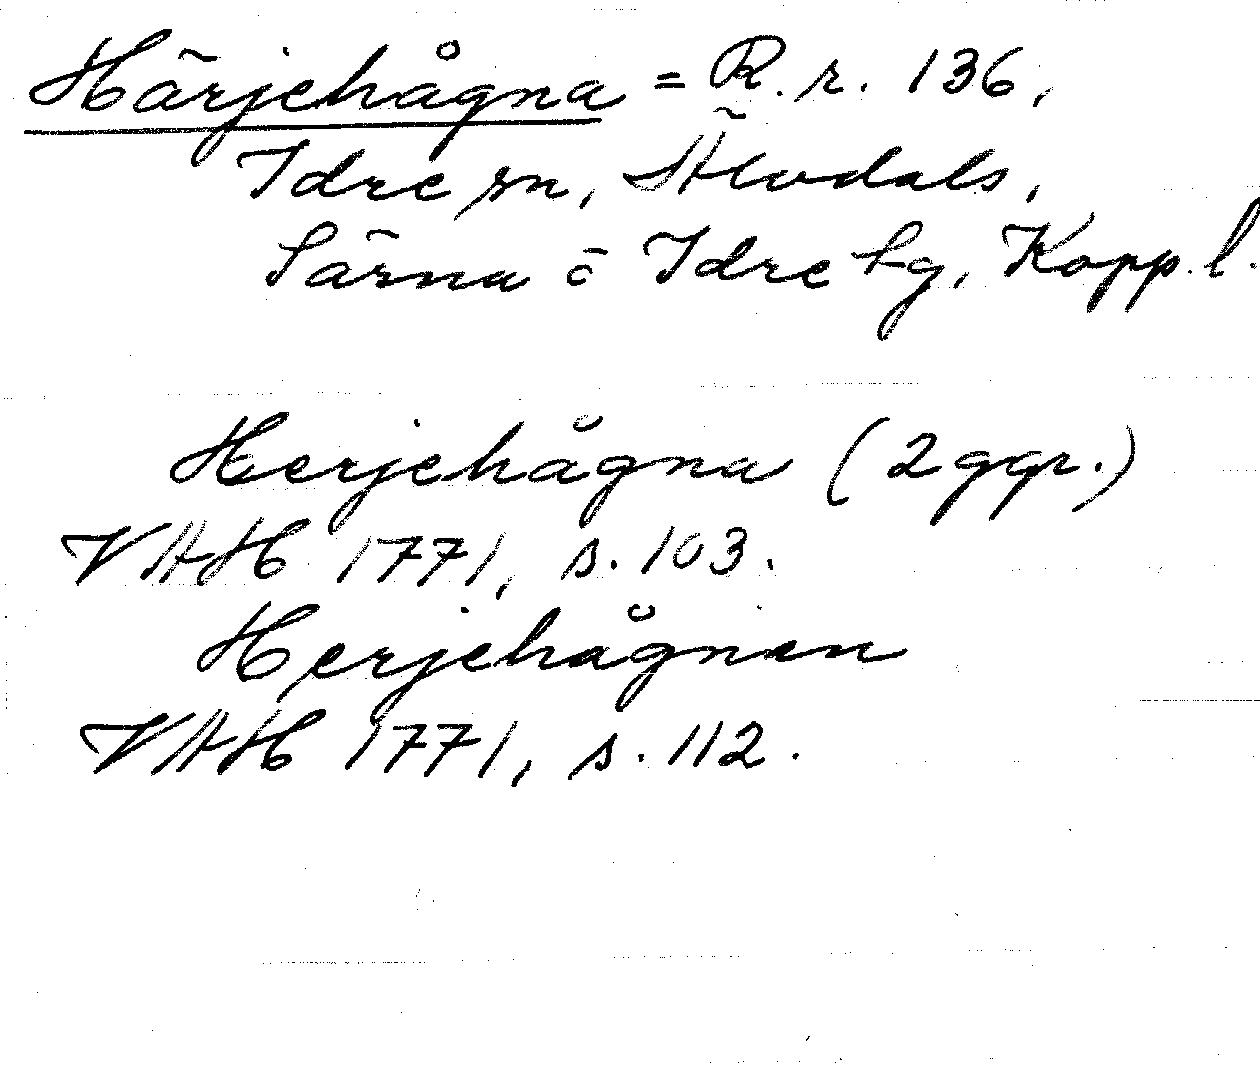 Härjehågna = R. r. 136,
Idre sn, Älvdals,
Särna o Idre tg, Kopp. l.
Herjehågna (2 ggr.)
VAH 1771, s. 103.
Herjehågnan
VAH 1771, s. 112.